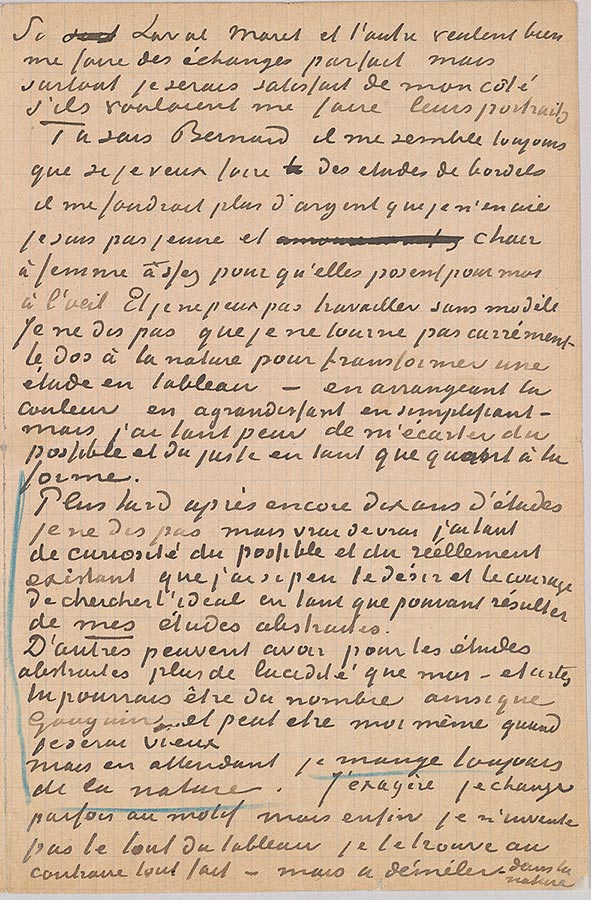 Si Laval Moret et l'autre veulent bien
me faire des échanges parfait mais
surtout je serais satisfait de mon côté
s'ils voulaient me faire leurs portraits
Tu sais Bernard il me semble toujours
que si je veux faire des etudes de bordels
il me faudrait plus d'argent que je n'en aie
je suis pas jeune et chair
à femme assez pour qu'elles posent pour moi
à l'oeil Et je ne peux pas travailler sans modèle
Je ne dis pas que je ne tourne pas carrément
le dos à la nature pour transformer une
étude en tableau – en arrangeant la
couleur en agrandissant en simplifiant –
mais j'ai tant peur de m'écarter du
possible et du juste en tant que quant à la
forme.
Plus tard après encore dix ans d'études
je ne dis pas mais vrai de vrai j'ai tant
de curiosité du possible et du réellement
existant que j'ai si peu le désir et le courage
de chercher l'ideal en tant que pouvant résulter
de mes études abstraites.
D'autres peuvent avoir pour les études
abstraites plus de lucidité que moi – et certes
tu pourrais être du nombre ainsi que
Gauguin et peut etre moi même quand
je serai vieux
mais en attendant je mange toujours
de la nature. J'exagère je change
parfois au motif mais enfin je n'invente
pas le tout du tableau je le trouve au
contraire tout fait – mais a démêler – dans la
nature